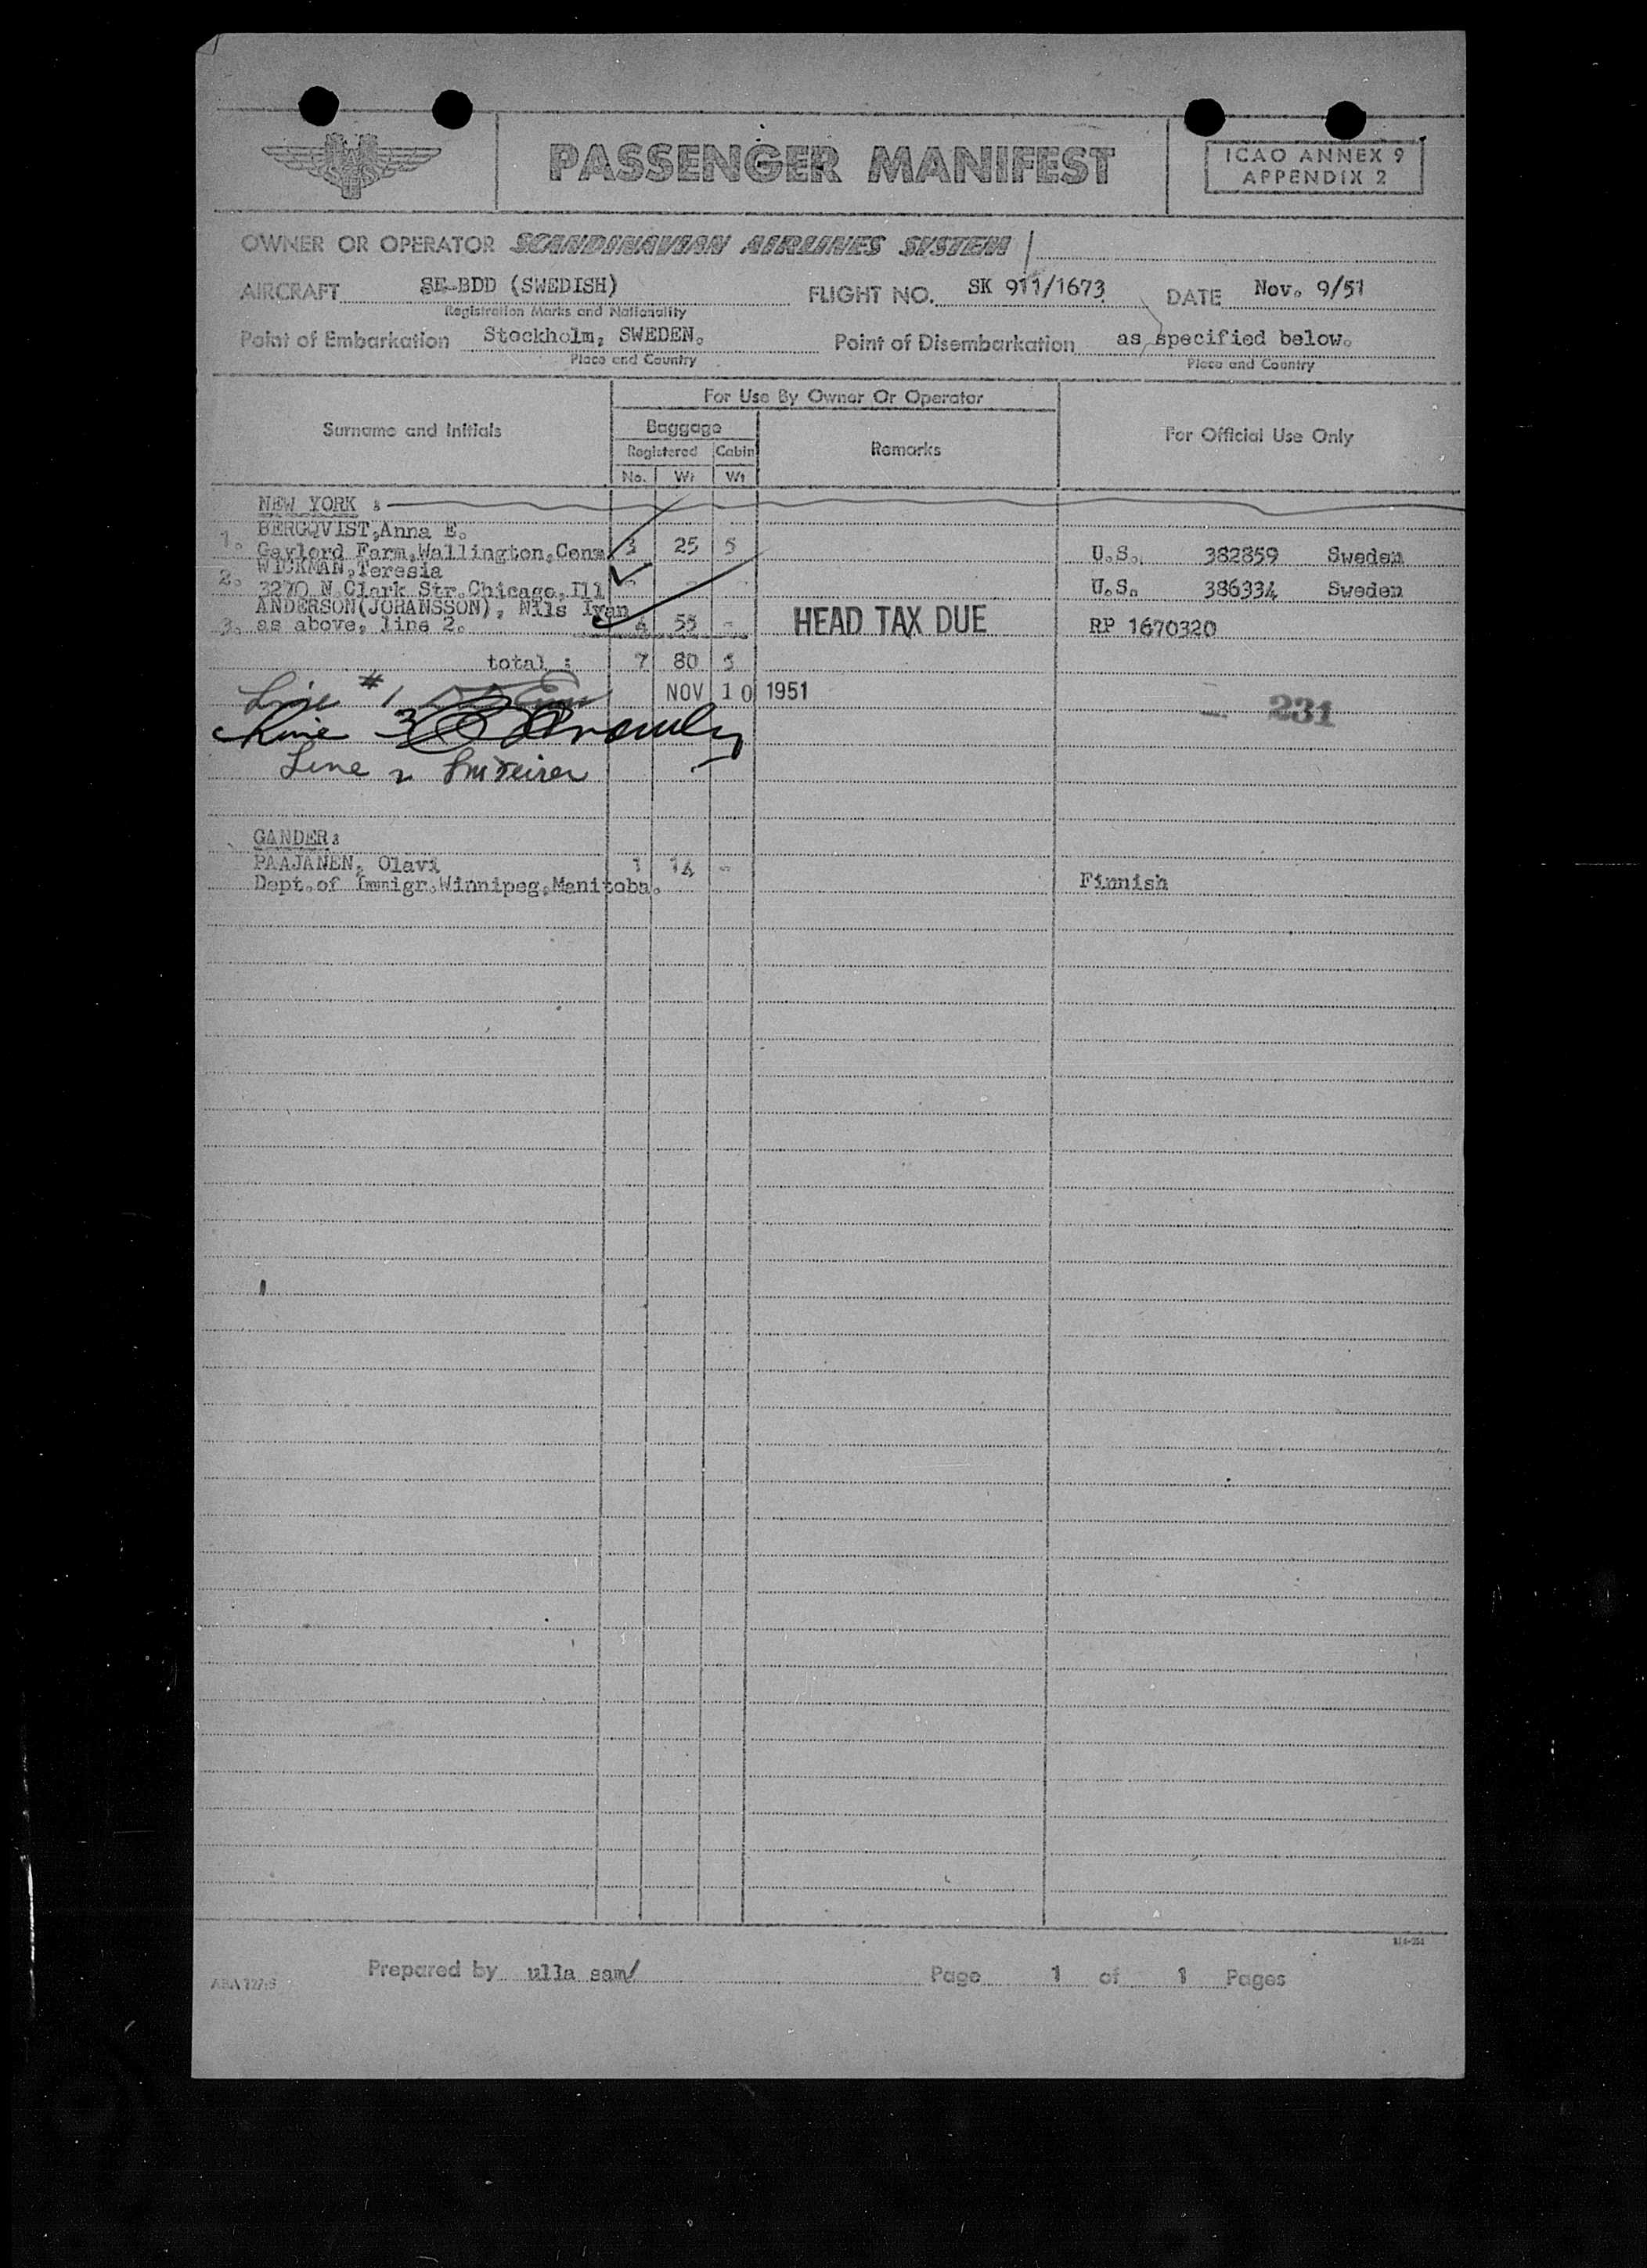 PASSENGER MANIFEST
ICAO ANNEX 9
APPENDIX 2
OWNER OR OPERATOR SCANDINAVIAN AIRLINES SYSTEM
AIRCRAFT SE-BDD (SWEDISH) FLIGHT NO. SK 911/1673 DATE Nov. 9/51
Registration Marks and Nationality
Point of Embarkation Stockholm, SWEDEN. Point of Disembarkation as specified below.
Place and Country Place and Country
For Use By Owner Or Operator
Surname and Initials Baggage Remarks For Official Use Only
Registered Cabin
No. Wt Wt
NEW YORK :
BERGQVIST,Anna E.
1. Gaylord Farm,Wallington,Conn. 3 25 5 U.S. 382859 Sweden
WICKMAN,Teresia
2. 3270 N.Clark Str.Chicago,Ill - - - U.S. 386334 Sweden
ANDERSON(JOHANSSON), Nils Ivan
3. as above, line 2. 4 55 - HEAD TAX DUE RP 1670320
total : 7 80 5
Line #1 NOV 10 1951
231
Line 3
Line 2
GANDER:
PAAJANEN, Olavi 1 14 -
Dept.of Immigr.Winnipeg,Manitoba. Finnish
Prepared by ulla sam/ Page 1 of 1 Pages